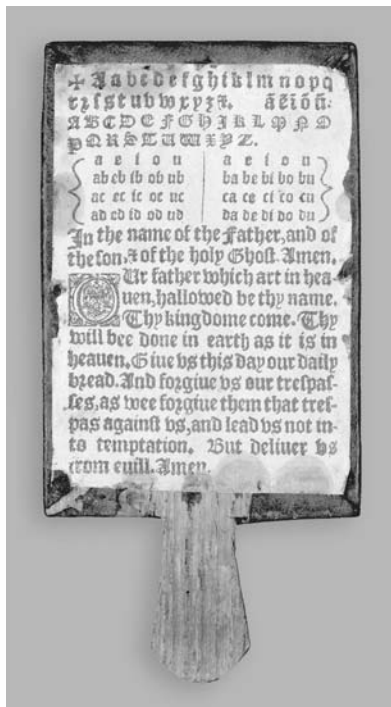 ✠ A a b c d e f g h i k l m n o p q
r ꝛ ſ s t u v w x y z ⁊. ã ẽ ĩ õ ũ:
A B C D E F G H I K L M N O
P Q R S T U W X Y Z.
a e i o u a e i o u
ab eb ib ob ub ba be bi bo bu
ac ec ic oc uc ca ce ci co cu
ad ed id od ud da de di do du
In the name of the Father, and of
the ſon, ⁊ of the holy Ghoſt. Amen.
OUr father which art in hea-
uen, hallowed be thy name.
Thy kingdome come. Thy
will bee done in earth as it is in
heauen. Giue vs this day our daily
bread. And forgiue vs our treſpaſ-
ſes, as wee forgiue them that treſ-
pas againſt vs, and lead vs not in-
to temptation. But deliuer vs
from euill. Amen.